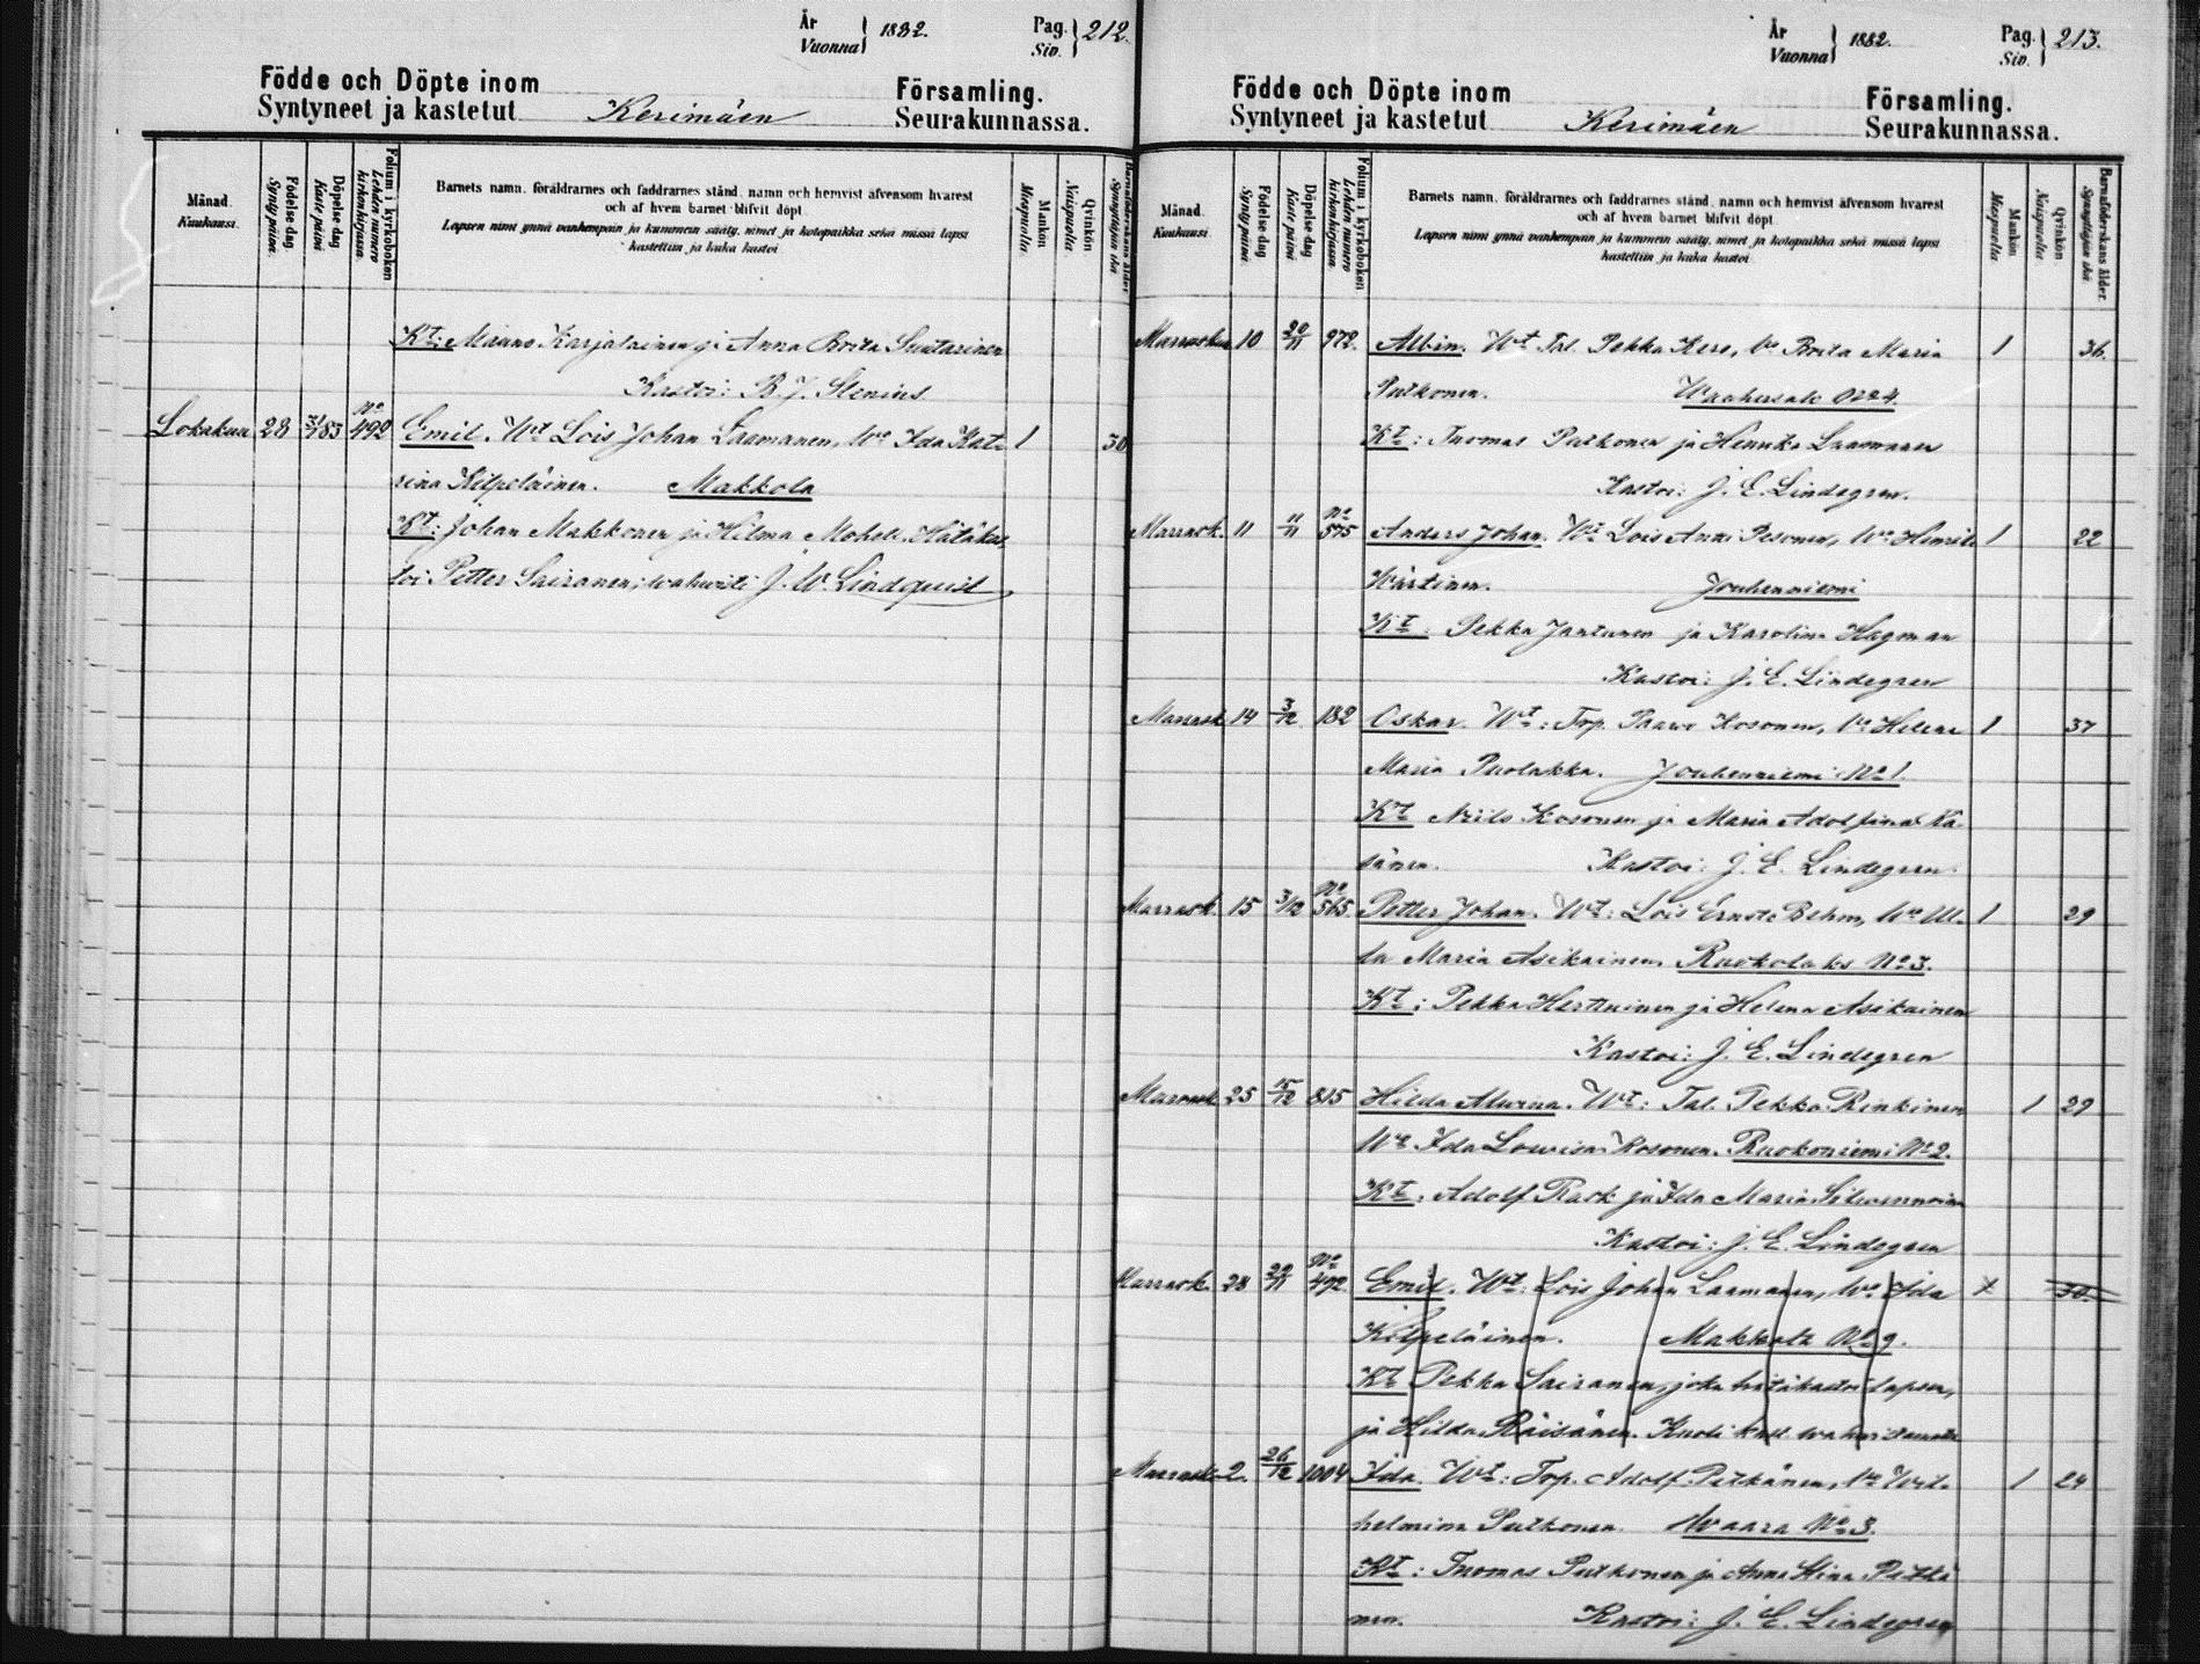 År
Vuonna } 1882.
Pag.
Siv. } 212.
Födde och Döpte inom
Syntyneet ja kastetut Kerimäen
Församling.
Seurakunnassa.
Månad.
Kuukausi.
Födelse dag
Synty päivä.
Döpelse dag
Kaste päivä
Folium i kyrkoboken
Lehden numero kirkonkirjassa.
Barnets namn, föräldrarnes och faddrarnes stånd, namn och hemvist äfvensom hvarest
och af hvem barnet blifvit döpt
Lapsen nimi ynnä vanhempain ja kummein sääty, nimet ja kotopaikka sekä missä lapsi
kastettiin ja kuka kastoi
Mankön
Miespuolta.
Qvinkön
Naispuolta.
Barnaföderskans ålder
Synnyttäjän ikä
Kt: Mauno Karjalainen ja Anna Brita Suutarinen
Kastoi: B. J. Stenius
Lokakuu 28 3/1 83 No 492 Emil. Wt Lois Johan Laamanen, Wo Ida Kata 1 30
rina Kilpeläinen. Makkola
Kt: Johan Makkonen ja Hilma Mohell. Hätäkas
toi Petter Sairanen; wahwisti J. W. Lindquist
År
Vuonna } 1882.
Pag.
Siv. } 213.
Födde och Döpte inom
Syntyneet ja kastetut Kerimäen
Församling.
Seurakunnassa.
Månad.
Kuukausi.
Födelse dag
Synty päivä.
Döpelse dag
Kaste päivä
Folium i kyrkoboken
Lehden numero kirkonkirjassa
Barnets namn, föräldrarnes och faddrarnes stånd, namn och hemvist äfvensom hvarest
och af hvem barnet blifvit döpt
Lapsen nimi ynnä vanhempain ja kummein sääty, nimet ja kotopaikka sekä missä lapsi
kastettiin ja kuka kastoi
Mankön
Miespuolta
Qvinkön
Naispuolta
Barnaföderskans ålder
Synnyttäjän ikä
Marraskuu 10 20/11 972. Albin. Wt Tal. Pekka Kero, Wo Brita Maria 1 36.
Putkonen. No 4.
Kt: Tuomas Putkonen ja Laamanen
Kastoi: J. E. Lindegren.
Marrask. 11 11/11 No 575 Anders Johan. Wt Lois Antti Pesonen, Wo 1 22
Wärtinen. Jouhenniemi
Kt: Pekka Jantunen ja Karolina Hagman
Kastoi: J. E. Lindegren
Marrask 14 3/12 182 Oskar. Wt: Trp. Paavo Kosonen, Wo Helena 1 37
Maria Puolakka. Jouhenniemi No 1.
Kt Nills Kosonen ja Maria Adolfina Kä
sänen. Kastoi: J. E. Lindegren.
Marrask. 15 3/12 No 565. Petter Johan. Wt: Lois Ernst Behm, Wo Ul- 1 29
la Maria Asikainen. Ruokolaks No 3.
Kt: Pekka Herttuinen ja Helena Asikainen
Kastoi: J. E. Lindegren
Marrask 25 15/12 815 Hilda Alwina. Wt: Tal. Pekka Rinkinen 1 29
Wo Ida Lowisa Kosonen. Ruokoniemi No 2.
Kt. Adolf Rask ja Ida Maria Silvennoinen
Kastoi: J. E. Lindegren
Marrask. 28 29/11 No 492. Emil. Wt: Lois Johan Laamanen, Wo Ida 30.
Kilpeläinen. Makkola No 9.
Kt Pekka Sairanen, joka hätäkastoi lapsen,
ja Hilda Räisänen. Kuoli
Marrask 2. 26/12 1004 Ida. Wt: Trp. Adolf Pitkänen, Wo Wil- 1 24
helmina Putkonen. Waara No 3.
Kt: Tuomas Putkonen ja Anna Stina Pitkä
nen. Kastoi: J. E. Lindegren